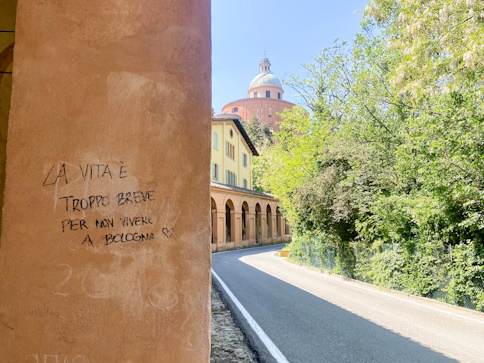 LA VITA È
TROPPO BREVE
PER NON VIVERE
A BOLOGNA ♡